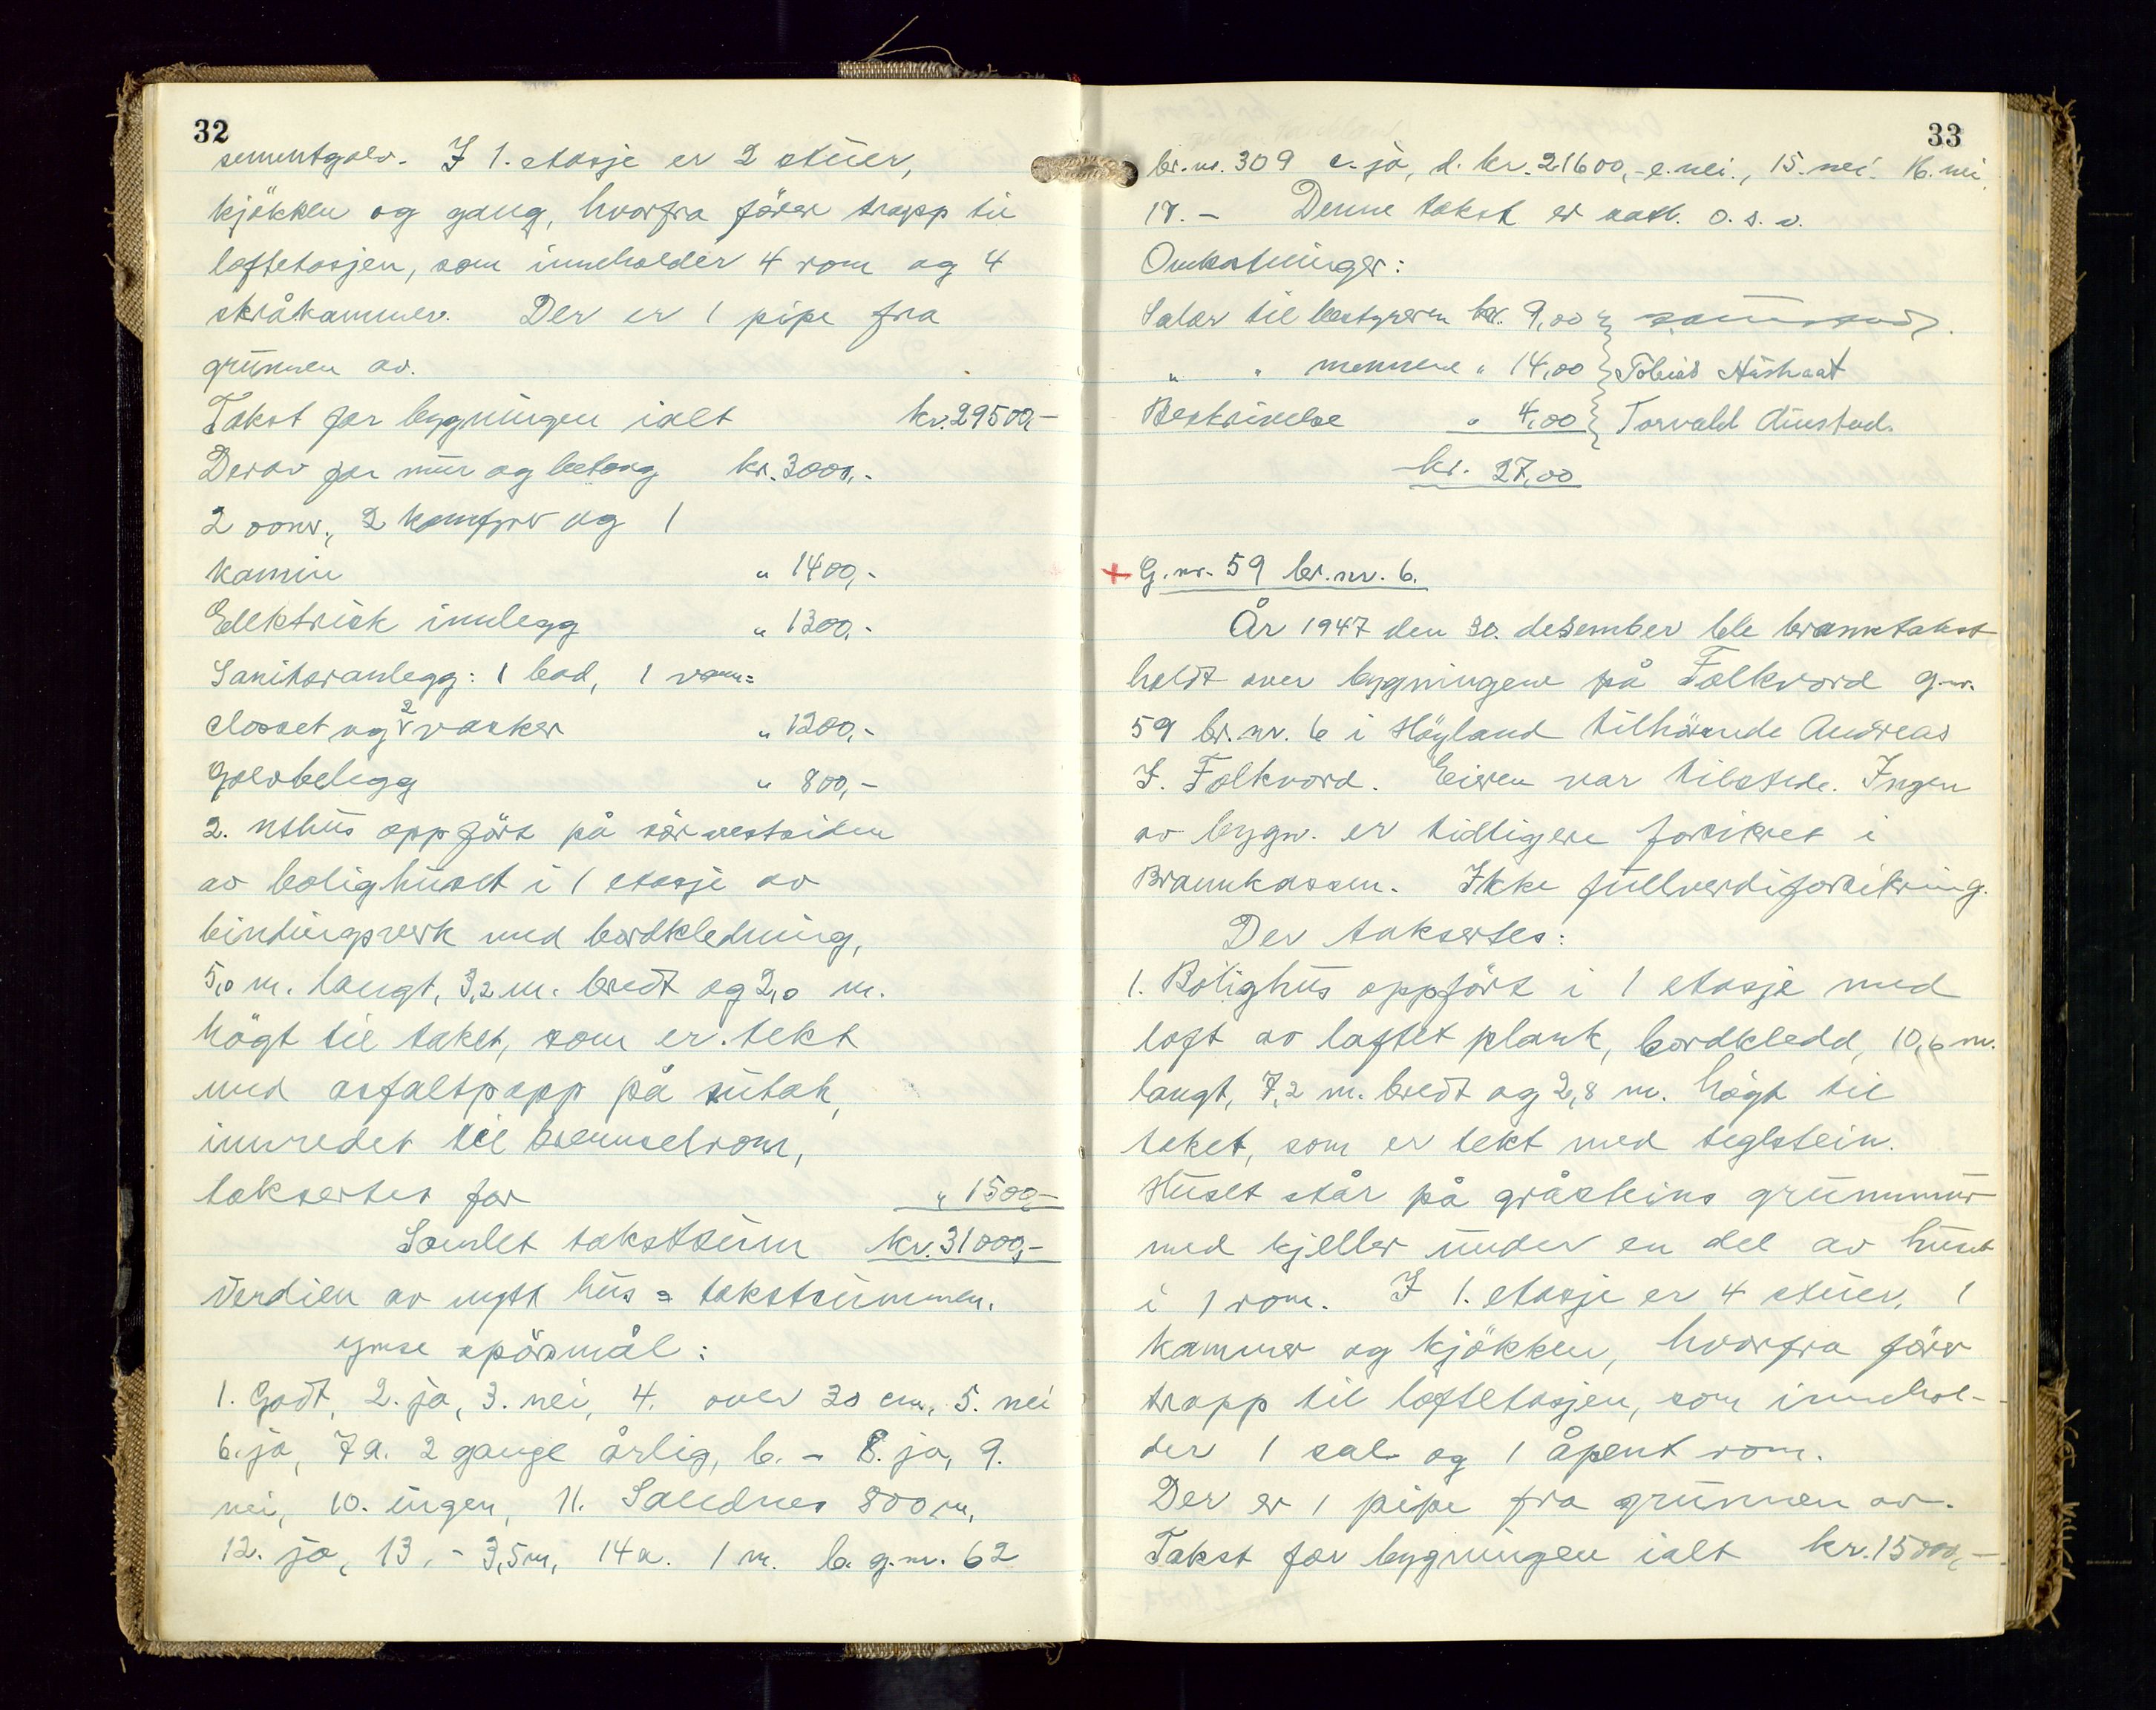 32
sementgolv. I 1. etasje er 2 stuer,
kjökken og gang, hvorfra förer trapp til
loftetasjen, som inneholder 4 rom og 4
skråkammer. Der er 1 pipe fra
grunnen av.
Takst for bygningen ialt kr. 29500,-
Derav for mur og betong kr. 3000,-
2 ovner, 2 komfyrer og 1
kamin " 1400,-
Elektrisk innlegg " 1300,-
Sanitæranlegg: 1 bad, 1 vann=
closset og 2 vasker " 1200,-
Golvbelegg " 800,-
2. Uthus oppfört på sörvestsiden
av bolighuset i 1 etasje av
bindingsverk med bordkledning,
5,0 m. langt, 3,2 m. bredt og 2,0 m.
högt til taket, som er tekt
med asfaltpapp på sutak,
innredet til brenselrom,
taksertes for " 1500,-
Samlet takstsum kr. 31000,-
Verdien av nytt hus = takstsummen.
Ymse spörsmål:
1. Godt, 2. ja, 3. nei, 4. over 30 cm, 5. nei
6. ja, 7a. 2 gange årlig, b. - 8. ja, 9.
nei, 10. ingen, 11. Sandnes 800 m,
12. ja, 13. - 3,5 m, 14a. 1 m. b. g.nr. 62
33
br.nr. 309 c. ja, d. kr. 21600,- e. nei., 15. nei. 16. nei,
17. - Denne takst er vatt. o.s.v.
Omkostninger:
Salær til bestyreren kr. 9,00
" " mennene " 14,00 Tobias
Beskrivelse " 4,00 Torvald Austad.
kr. 27,00
+ G.nr. 59 br.nr. 6.
År 1947 den 30. desember ble branntakst
holdt over bygningene på Folkvord g.nr.
59 br.nr. 6 i Höyland tilhörende Andreas
I. Folkvord. Eieren var tilstede. Ingen
av bygn. er tidligere forsikret i
Brannkassen. Ikke fullverdiforsikring.
Der taksertes:
1. Bolighus oppfört i 1 etasje med
loft av laftet plank, bordkledd, 10,6 m.
langt, 7,2 m. bredt og 2,8 m. högt til
taket, som er tekt med teglstein.
Huset står på gråsteins grunnmur
med kjeller under en del av huset
i 1 rom. I 1. etasje er 4 stuer, 1
kammer og kjökken, hvorfra förer
trapp til loftetasjen, som innehol-
der 1 sal og 1 åpent rom.
Der er 1 pipe fra grunnen av.
Takst for bygningen ialt kr. 15000,-